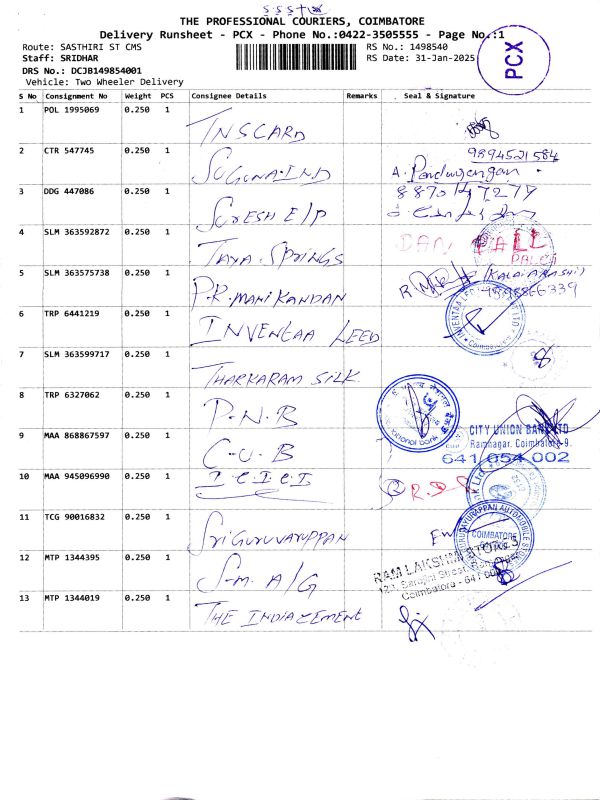 THE PROFESSIONAL COURIERS, COIMBATORE
Delivery Runsheet - PCX - Phone No.:0422-3505555 - Page No.:1
PCX
Route: SASTHIRI ST CMS
RS No.: 1498540
Staff: SRIDHAR
RS Date: 31-Jan-2025
DRS No.: DCJB149854001
Vehicle: Two Wheeler Delivery
S No Consignment No Weight PCS Consignee Details Remarks Seal & Signature
1 POL 1995069 0.250 1 TNSCARD
2 CTR 547745 0.250 1 SUGUNA-IND
9894521584
A. Pandurengan
3 DDG 447086 0.250 1 SURESH E/P
8870147279
4 SLM 363592872 0.250 1 JAYA SPRINGS
5 SLM 363575738 0.250 1 P.R. MANIKANDAN
(KALAIARASHI)
6 TRP 6441219 0.250 1 INVENTAA LEED
7 SLM 363599717 0.250 1 THARKARAM SILK.
8 TRP 6327062 0.250 1 P-N-B
9 MAA 868867597 0.250 1 C-U-B
CITY UNION BANK LTD
Ramnagar. Coimbatore-9.
641 054 002
10 MAA 945096990 0.250 1 I-C-I-C-I
11 TCG 90016832 0.250 1 SRI GURUVARUPPAN
COIMBATORE
12 MTP 1344395 0.250 1 S-M. A/G
RAM LAKSHMI STORES
Coimbatore - 641 009
13 MTP 1344019 0.250 1 THE INDIA CEMENT